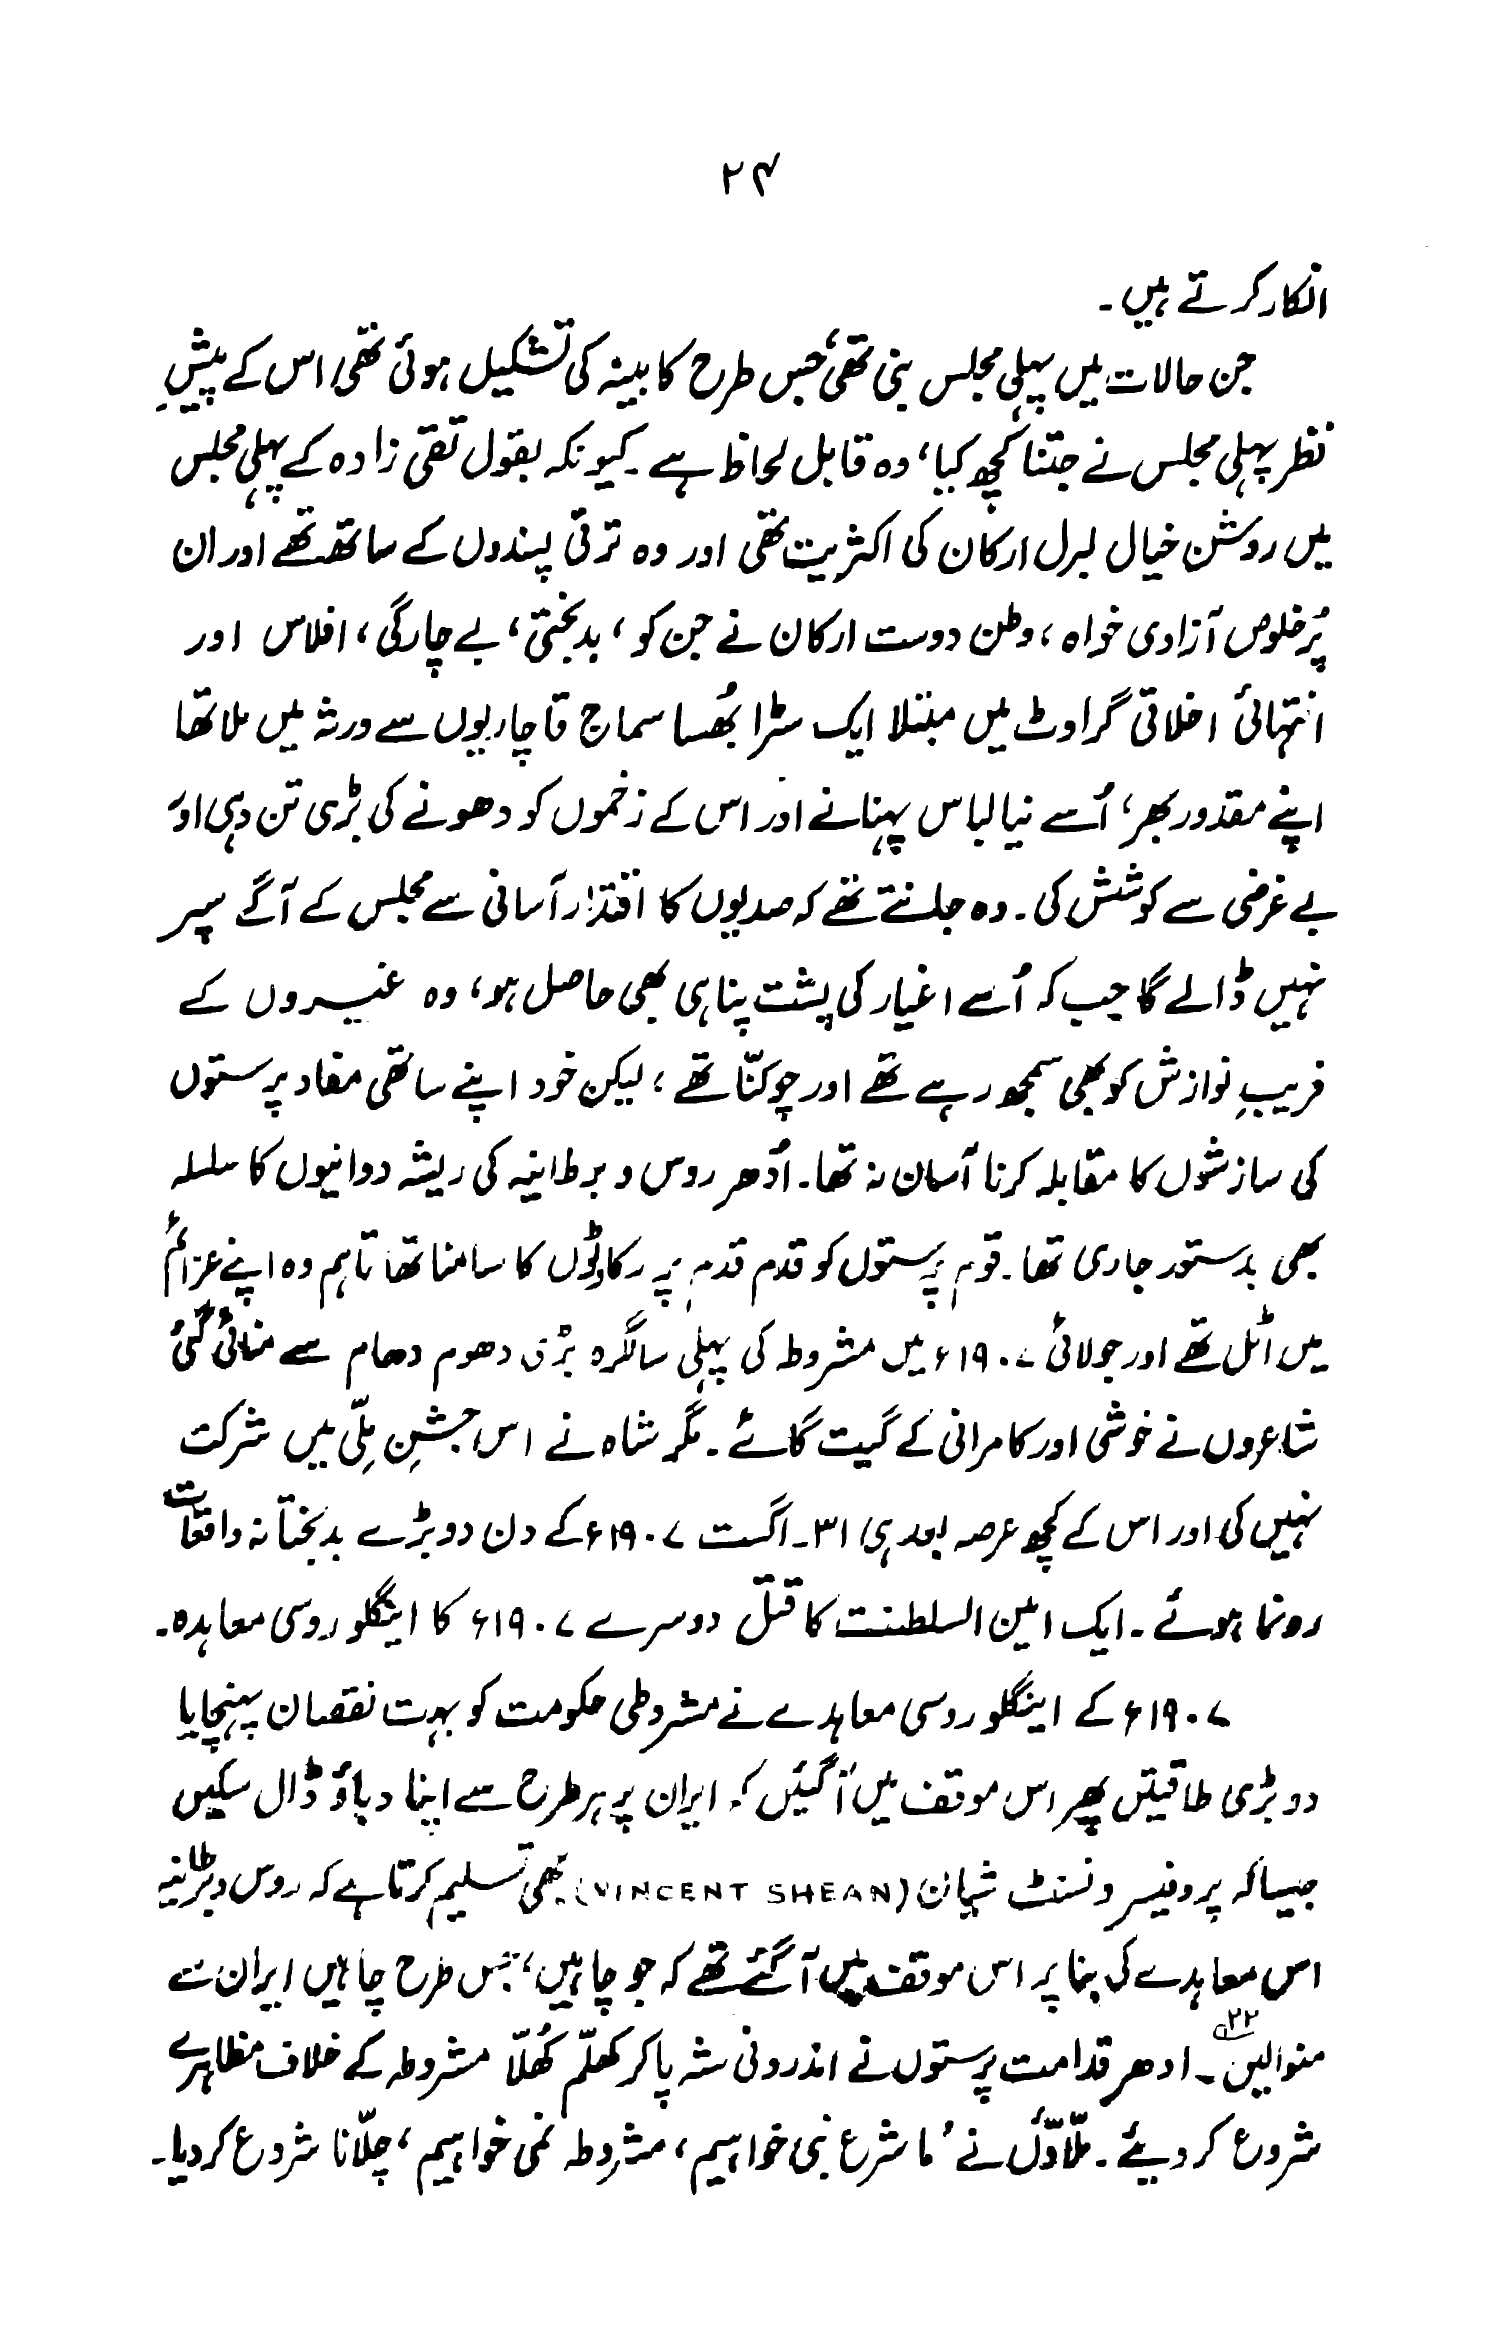 ۲۴
انکار کرتے ہیں۔
جن حالات میں پہلی مجلس بنی تھی، جس طرح کابینہ کی تشکیل ہوئی تھی اس کے پیشِ
نظر پہلی مجلس نے جتنا کچھ کیا، وہ قابل لحاظ ہے۔ کیونکہ بقول تقی زادہ کے پہلی مجلس
میں روشن خیال لبرل ارکان کی اکثریت تھی اور وہ ترقی پسندوں کے ساتھ تھے اور ان
پُرخلوص آزادی خواہ، وطن دوست ارکان نے جن کو، بدبختی، بے چارگی، افلاس اور
انتہائی اخلاقی گراوٹ میں مبتلا ایک سڑا بھُسا سماج قاچاریوں سے ورثہ میں ملا تھا
اپنے مقدور بھر، اُسے نیا لباس پہنانے اور اس کے زخموں کو دھونے کی بڑی تن دہی اور
بے غرضی سے کوشش کی۔ وہ جانتے تھے کہ صدیوں کا اقتدار آسانی سے مجلس کے آگے سپر
نہیں ڈالے گا جب کہ اُسے اغیار کی پشت پناہی بھی حاصل ہو، وہ غیروں کے
فریبِ نوازش کو بھی سمجھ رہے تھے اور چوکنّا تھے؛ لیکن خود اپنے ساتھی مفاد پرستوں
کی سازشوں کا مقابلہ کرنا آسان نہ تھا۔ اُدھر روس و برطانیہ کی ریشہ دوانیوں کا سلسلہ
بھی بدستور جاری تھا۔ قوم پرستوں کو قدم قدم پر رکاوٹوں کا سامنا تھا تاہم وہ اپنے عزائم
میں اٹل تھے اور جولائی ۱۹۰۷ء میں مشروطہ کی پہلی سالگرہ بڑی دھوم دھام سے منائی گئی
شاعروں نے خوشی اور کامرانی کے گیت گائے۔ مگر شاہ نے اس جشنِ ملّی میں شرکت
نہیں کی اور اس کے کچھ عرصہ بعد ہی ۳۱۔ اگست ۱۹۰۷ء کے دن دو بڑے بدبختانہ واقعات
رونما ہوئے۔ ایک امین السلطنت کا قتل دوسرے ۱۹۰۷ء کا اینگلو روسی معاہدہ۔
۱۹۰۷ء کے اینگلو روسی معاہدے نے مشروطی حکومت کو بہت نقصان پہنچایا
دو بڑی طاقتیں پھر اس موقف میں آگئیں کہ ایران پر ہر طرح سے اپنا دباؤ ڈال سکیں
جیسا کہ پروفیسر ونسنٹ شیان (VINCENT SHEAN) بھی تسلیم کرتا ہے کہ روس و برطانیہ
اس معاہدے کی بنا پر اس موقف میں آگئے تھے کہ جو چاہیں، جس طرح چاہیں ایران سے
منوالیں۔ ۲۲ ادھر قدامت پرستوں نے اندرونی شہ پاکر کھلّم کُھلّا مشروطہ کے خلاف مظاہرے
شروع کر دیئے۔ ملّاؤں نے ’ما شرع نبی خواہیم، مشروطہ نمی خواہیم، چلّانا شروع کر دیا۔